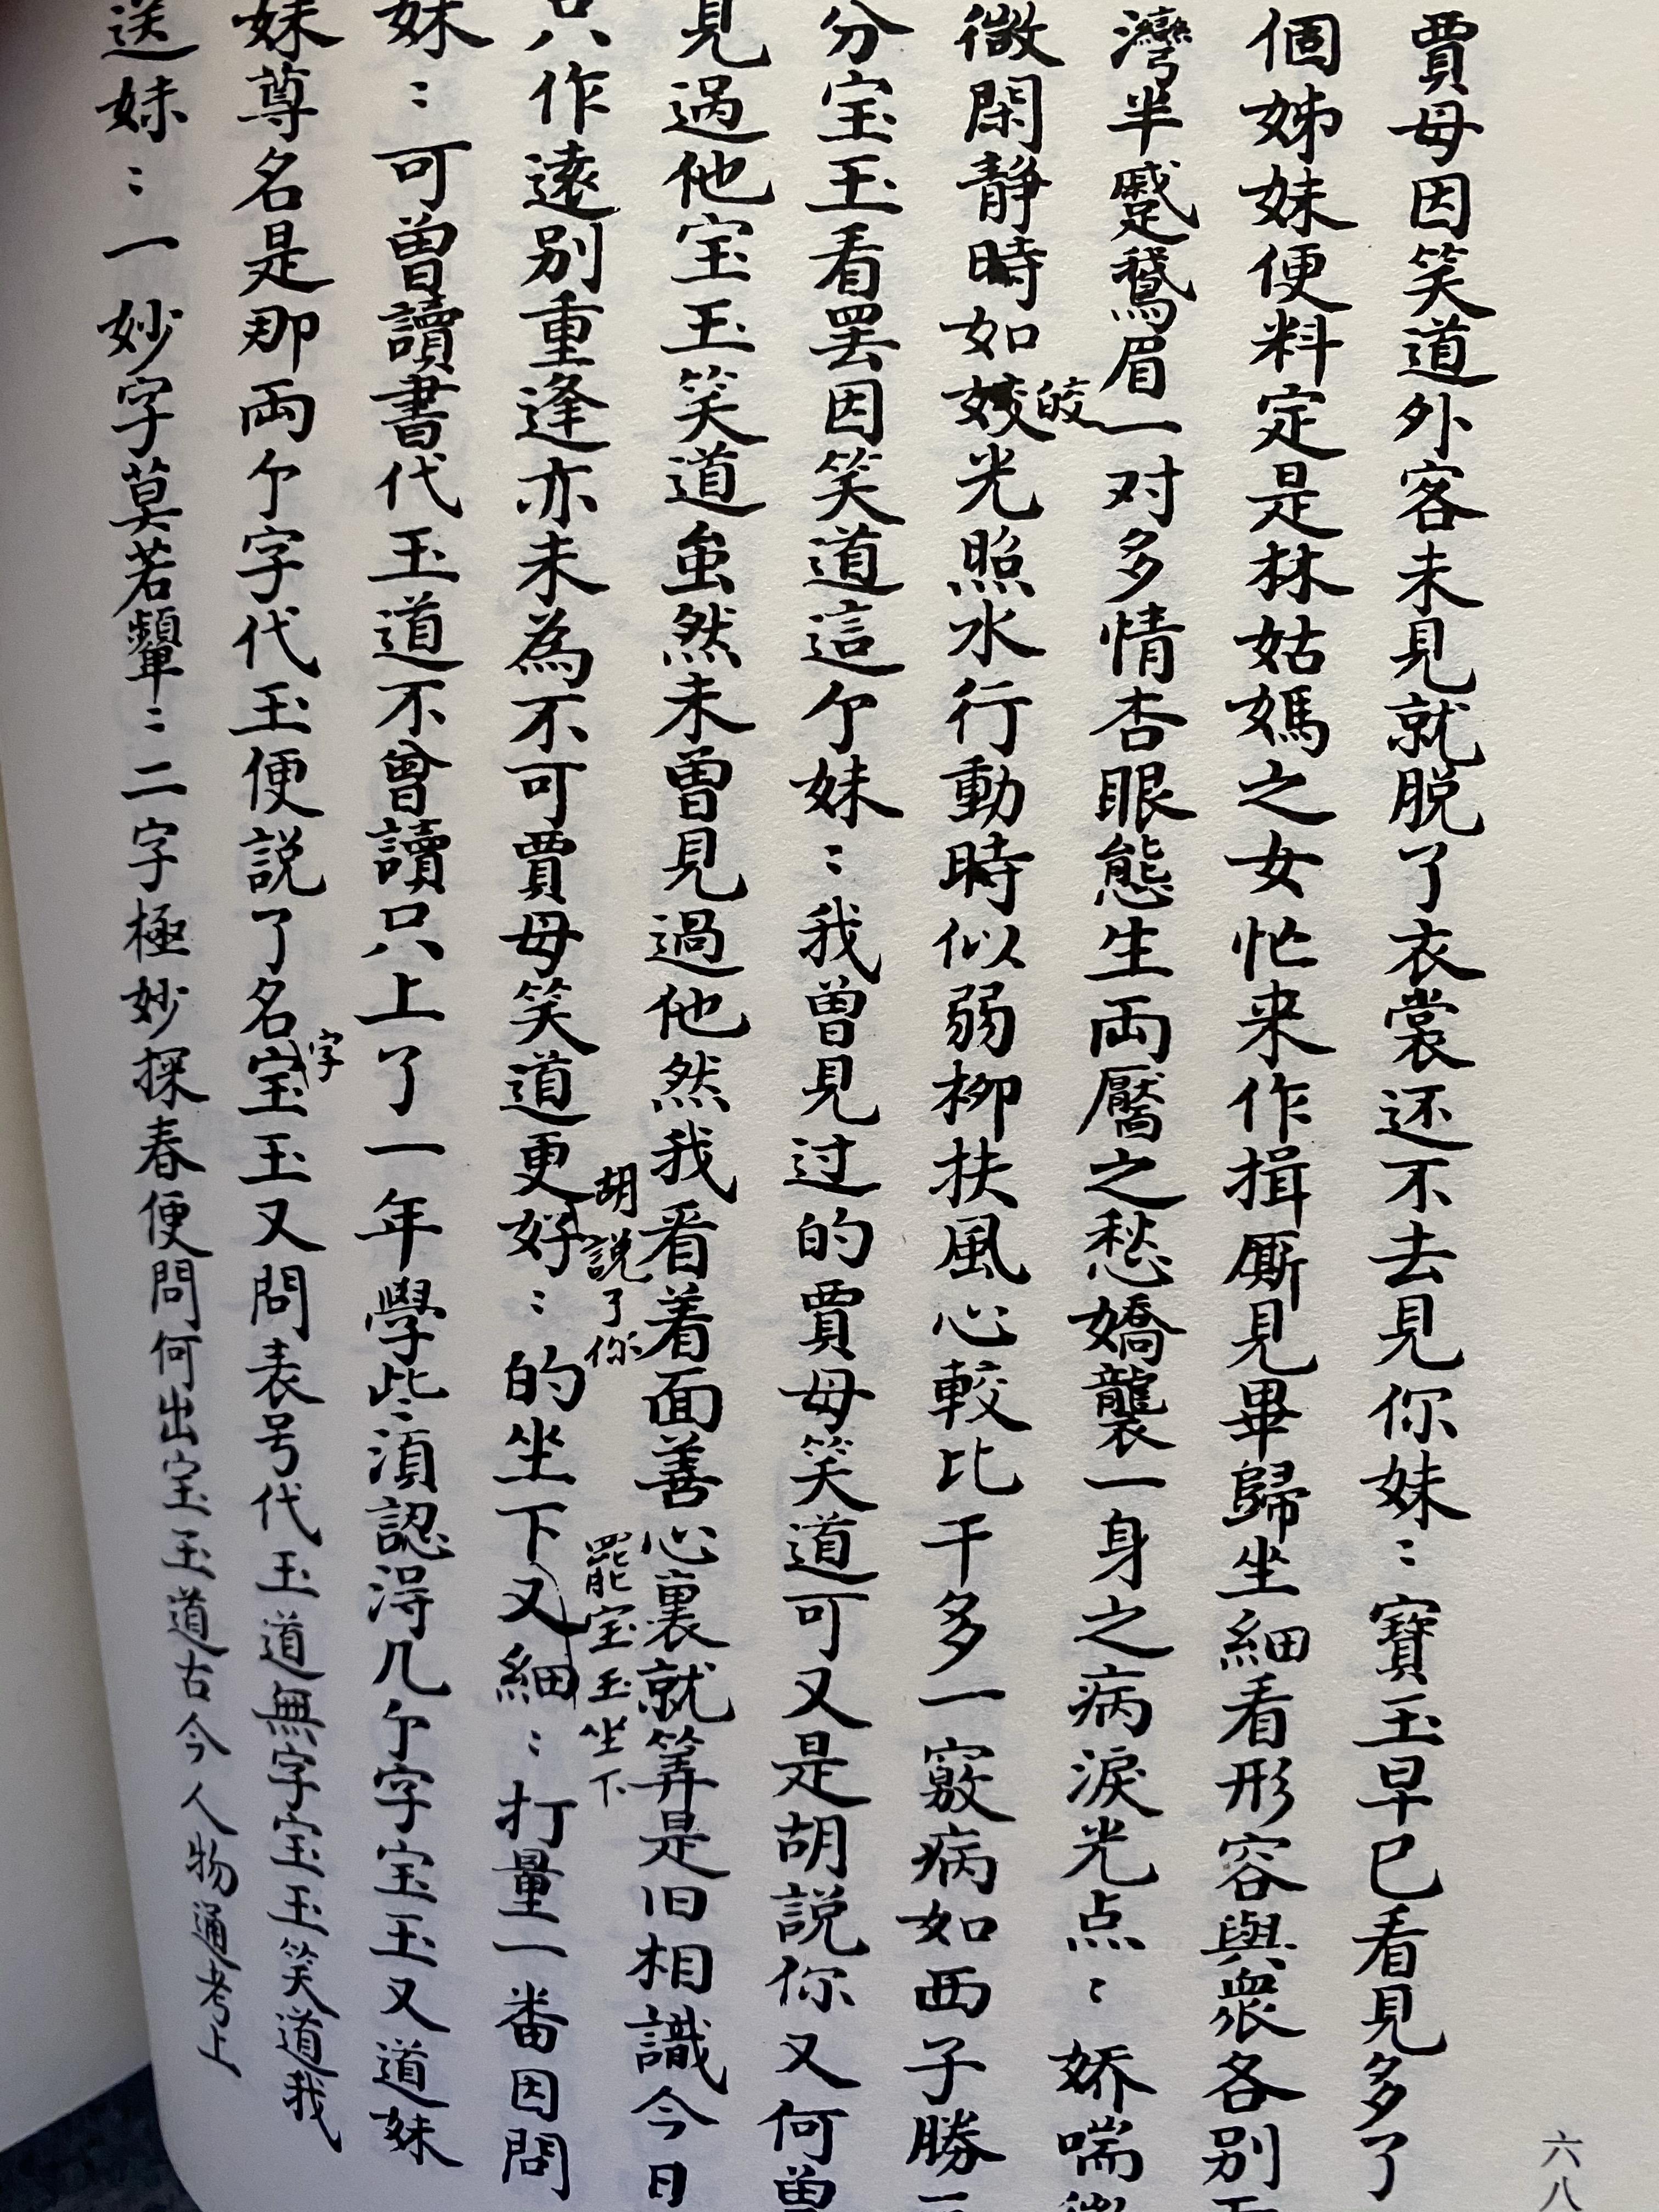 賈母因笑道外客未見就脱了衣裳还不去見你妹〻寶玉早已看見多了
個姊妹便料定是林姑媽之女忙来作揖厮見畢歸坐細看形容與衆各别
灣半蹙鵞眉一对多情杏眼態生両靨之愁嬌襲一身之病淚光点〻娇喘微
微閑静時如姣光照水行動時似弱柳扶風心較比干多一竅病如西子勝三
皎
分宝玉看罢因笑道這个妹〻我曽見过的賈母笑道可又是胡説你又何曽
見過他宝玉笑道虽然未曽見過他然我看着面善心裏就筭是旧相識今日
只作遠别重逢亦未為不可賈母笑道更好〻的坐下又細〻打量一番因問
胡説了你
罷宝玉坐下
妹〻可曽讀書代玉道不曾讀只上了一年學些〻須認淂几个字宝玉又道妹
妹尊名是那両个字代玉便説了名宝玉又問表号代玉道無字宝玉笑道我
字
送妹〻一妙字莫若顰〻二字極妙探春便問何出宝玉道古今人物通考上
六八